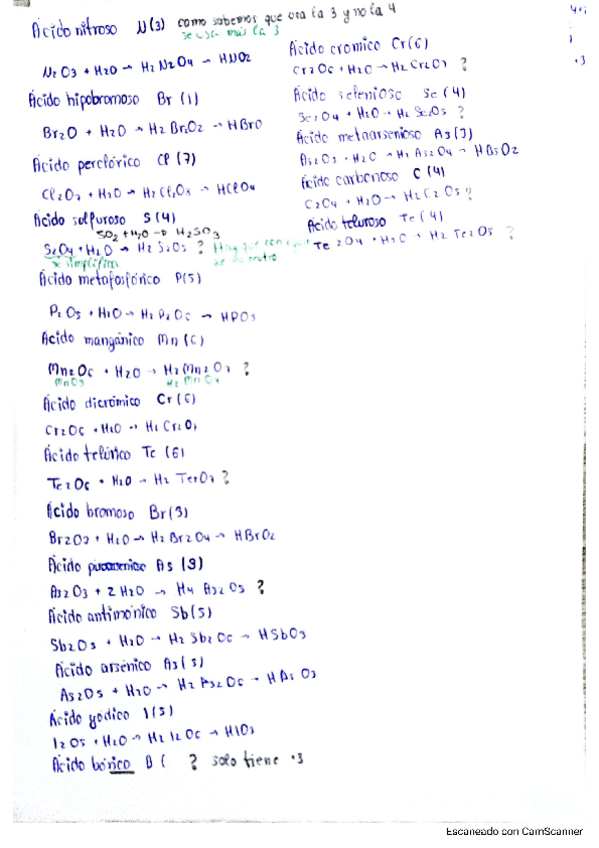 Ácido nitroso N(3) como sabemos que usa la 3 y no la 4
se usa más la 3
N2O3 + H2O → H2N2O4 → HNO2
Ácido hipobromoso Br (1)
Br2O + H2O → H2Br2O2 → HBrO
Ácido perclórico Cl (7)
Cl2O7 + H2O → H2Cl2O8 → HClO4
Ácido sulfuroso S(4)
SO2 + H2O → H2SO3
S2O4 + H2O → H2S2O5 ? Hay que
se simplifica
Ácido metafosfórico P(5)
P2O5 + H2O → H2P2O6 → HPO3
Ácido mangánico Mn (6)
Mn2O6 + H2O → H2Mn2O7 ?
MnO3 H2MnO4
Ácido dicrómico Cr(6)
Cr2O6 + H2O → H2Cr2O7
Ácido telúrico Te (6)
Te2O6 + H2O → H2Te2O7 ?
Ácido bromoso Br(3)
Br2O3 + H2O → H2Br2O4 → HBrO2
Ácido As (3)
As2O3 + 2H2O → H4As2O5 ?
Ácido antimónico Sb(5)
Sb2O5 + H2O → H2Sb2O6 → HSbO3
Ácido arsénico As(5)
As2O5 + H2O → H2As2O6 → HAsO3
Ácido yódico I(5)
I2O5 + H2O → H2I2O6 → HIO3
Ácido bórico B ( ? solo tiene +3
Ácido crómico Cr(6)
Cr2O6 + H2O → H2Cr2O7 ?
Ácido selenioso Se (4)
Se2O4 + H2O → H2Se2O5 ?
Ácido metaarsenioso As(3)
As2O3 + H2O → H2As2O4 → HAsO2
Ácido carbonoso C (4)
C2O4 + H2O → H2C2O5 ?
Ácido teluroso Te (4)
Te2O4 + H2O → H2Te2O5 ?
Escaneado con CamScanner